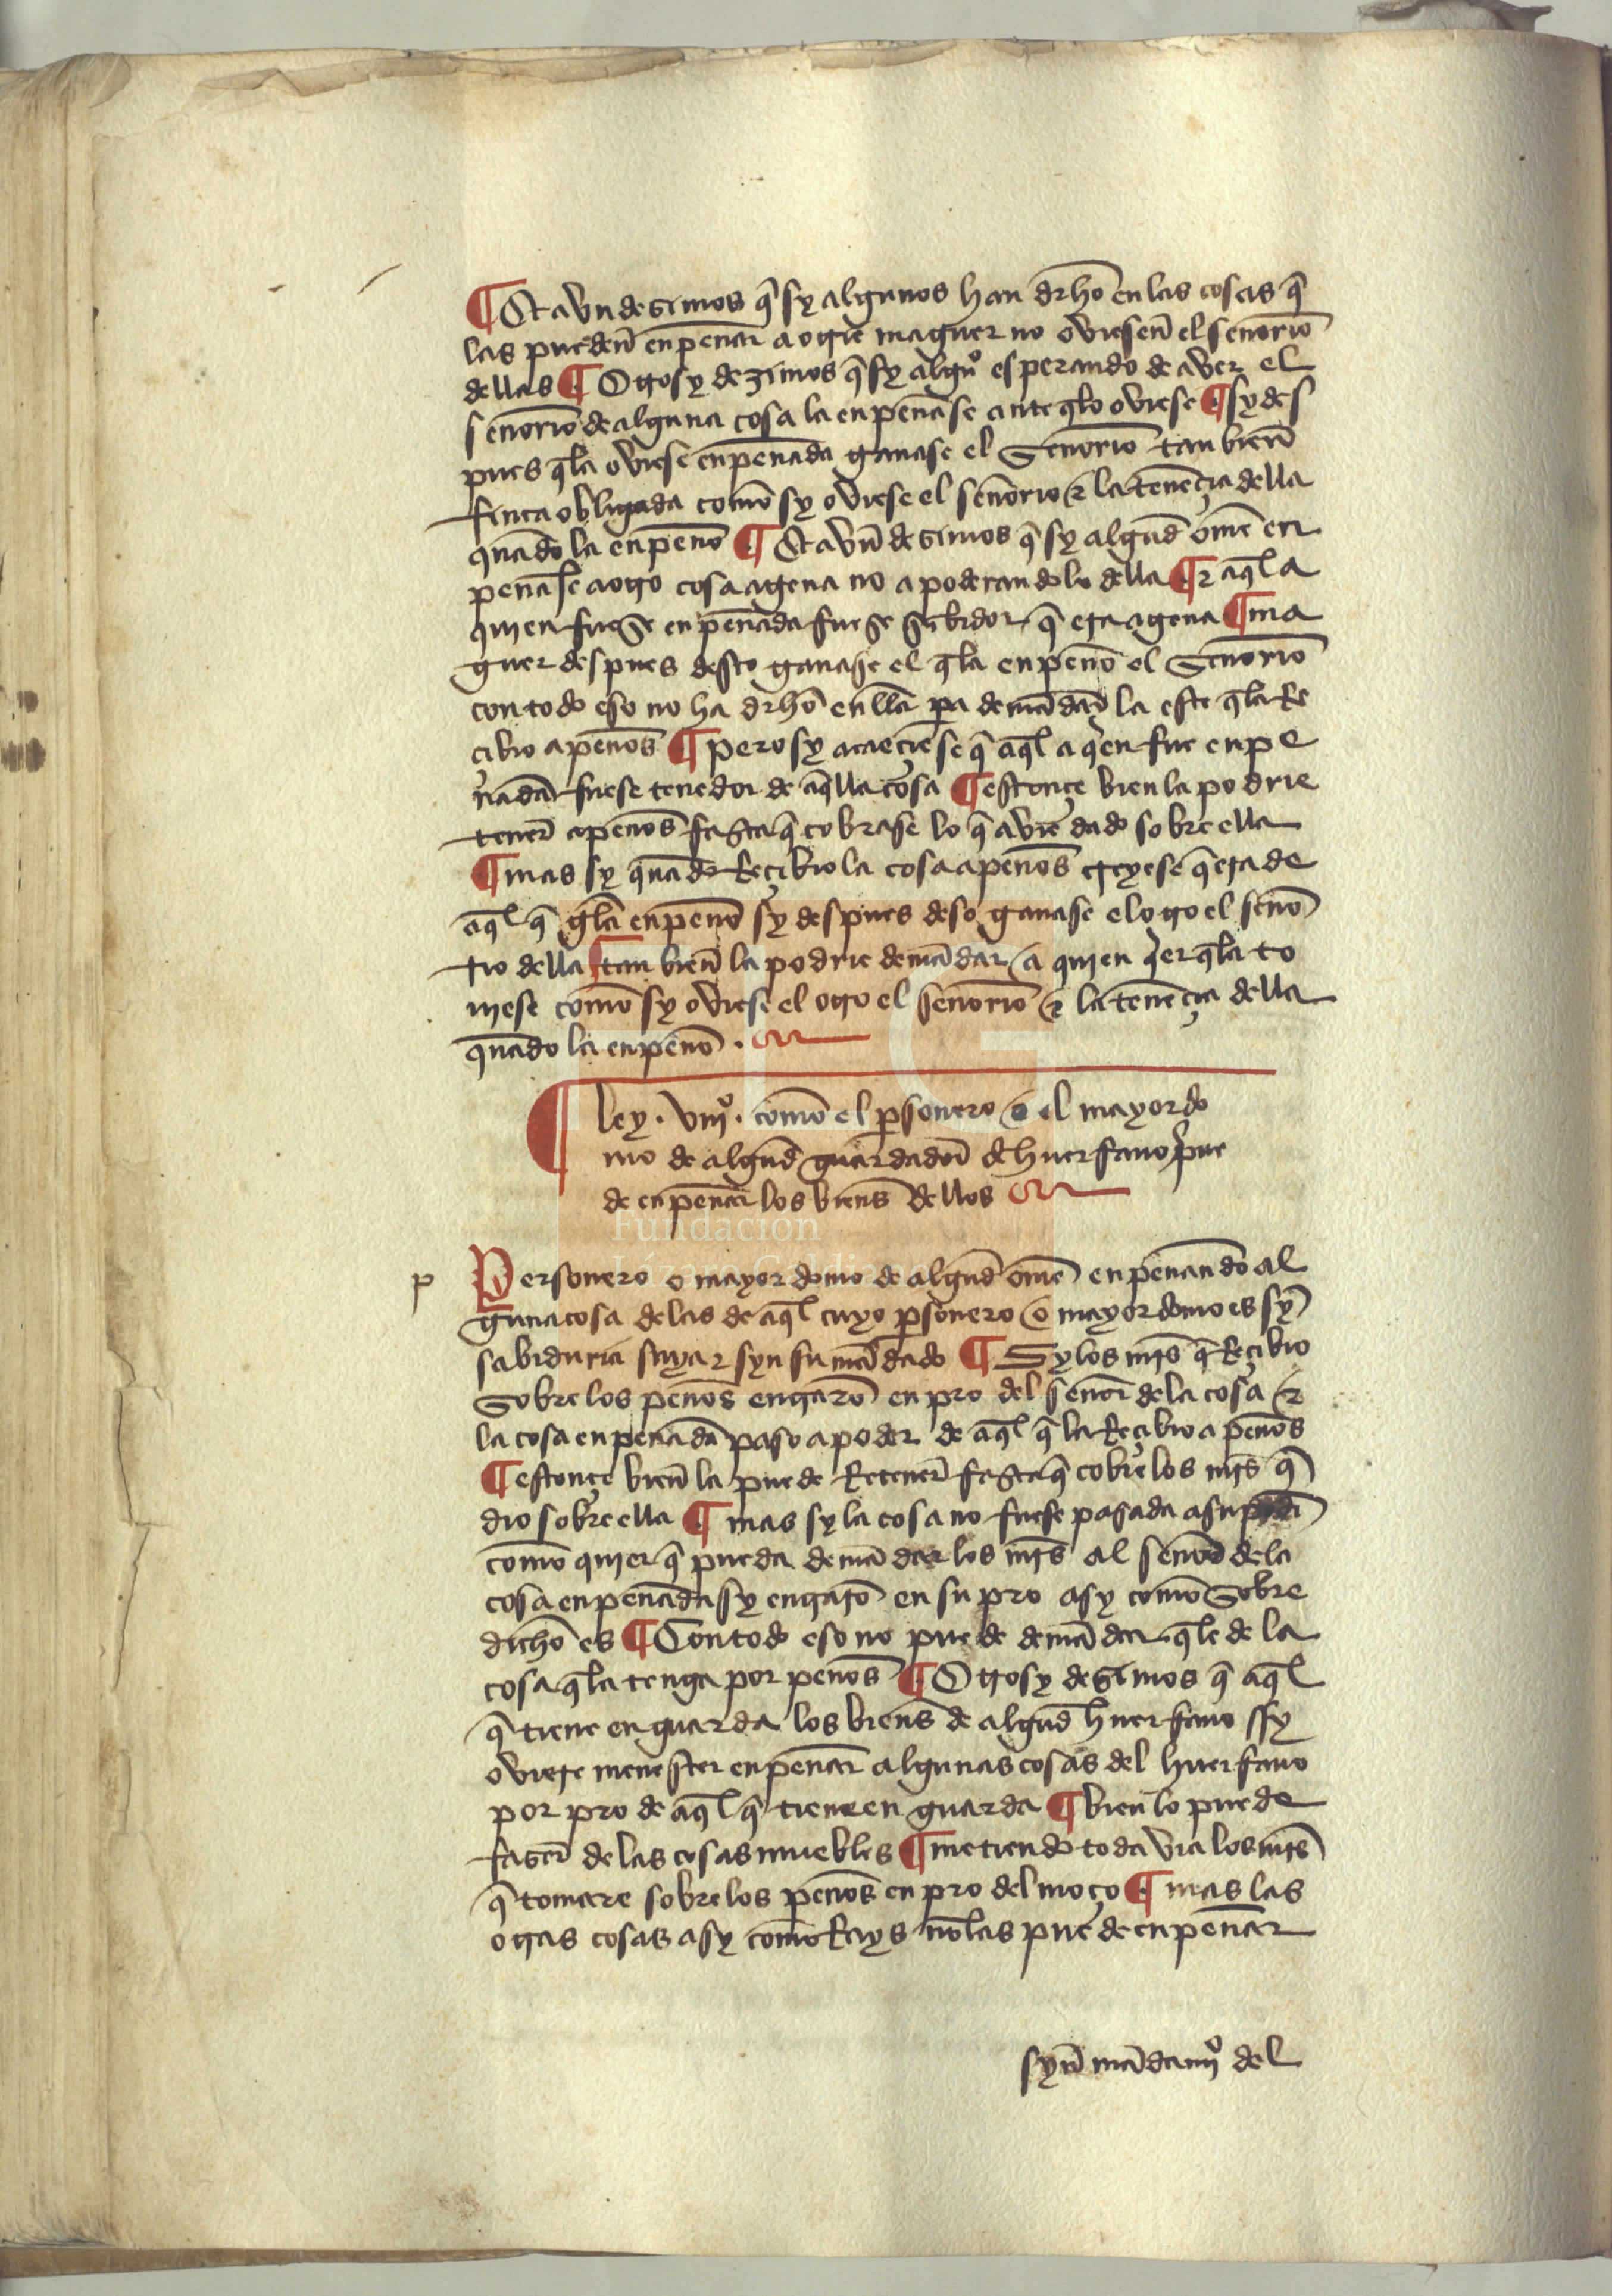 ¶ Et avn desimos q̃ sy algunos han dr̃ho en las cosas q̃
las puedeñ enpeñar a otrie maguer no oviesen̄ el señorio
dellas ¶ Otrosy dezimos q̃ sy algũo esperando de aver el
señorio de alguna cosa la enpeñase ante q̃lo oviese ¶ sy des
pues q̃la oviese enpeñada ganase el señorio tan bien̄
finca obligada como sy oviese el señorio ⁊ la tenẽçia della
quãdo la enpeño ¶ Et avñ desimos q̃ sy algũd om̃e en
peñase a otro cosa agena no apoderandolo della ¶ ⁊ aq̃l a
quien fuese enpeñada fuese sabidor q̃ era agena ¶ ma
guer despues desto ganase el q̃la enpeño el señorio
con todo eso no ha dr̃ho en lla pa demãdar la este q̃la Re
çibio a peños ¶ pero sy acaeçiese q̃ aq̃l a q̃en fue enpe
ñada fuese tenedor de aq̃lla cosa ¶ estonçe bien la podrie
tener̃ a peños fasta q̃ cobrase lo q̃ avie dado sobre ella
¶ mas sy quãdo Reçibio la cosa a peños creyese q̃ era de
aq̃l q̃ gela enpeño sy despues deso ganase el otro el seño
rio della ¶ tan bien̄ la podrie demãdar a quien q̃er q̃la to
uiese como sy oviese el otro el señorio ⁊ la tenẽçia della
quãdo la enpeño .
¶ ley . viijº . como el p̃sonero o el mayordo
mo de algũd guardador de huerfano pue
de enpeñar los bienẽs dellos
p
Personero o mayordomo de algũd om̃e enpeñando al
guna cosa de las de aq̃l cuyo p̃sonero o mayordomo es syñ
sabiduria suya ⁊ syn su mãdado ¶ Sy los mr̃s q̃ Reçibio
sobre los peños entraro en pro del señor de la cosa ⁊
la cosa enpeñada paso a poder de aq̃l q̃ la Reçibio a peños
¶ estonçe bien̄ la puede Retener̃ fasta q̃ cobre los mr̃s q̃
dio sobre ella ¶ mas sy la cosa no fuese pasada a su
como quier q̃ pueda demãdar los mr̃s al señor de la
cosa enpeñada sy entraro en su pro asy como sobre
dicho es ¶ Con todo eso no puede demãdar q̃le de la
cosa q̃la tenga por peños ¶ Otrosy desimos q̃ aq̃l
q̃ tiene en guarda los bienẽs de algũd huerfano ssy
oviere menester enpeñar algunas cosas del huerfano
por pro de aq̃l q̃ tiene en guarda ¶ bien lo puede
faser̃ de las cosas muebles ¶ metiendo toda via los mr̃s
q̃ tomare sobre los peños en pro del moço ¶ mas las
otras cosas asy como Rays no las puede enpeñar
syñ mãdamiº del